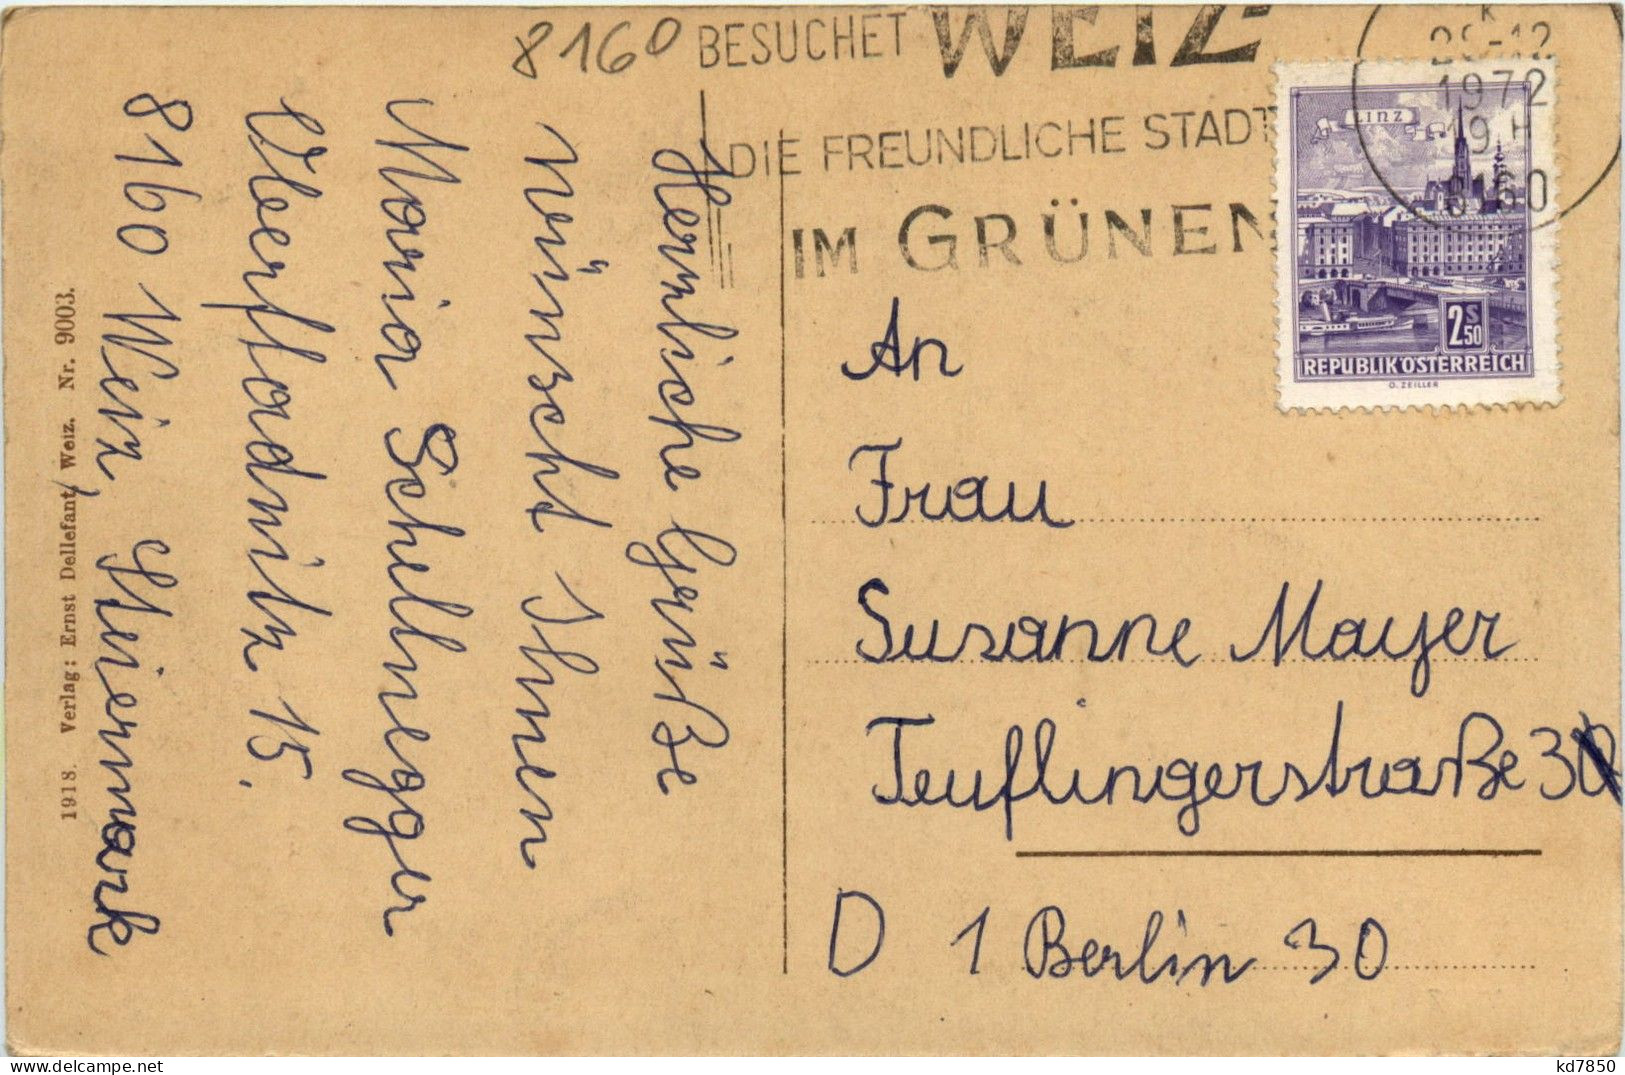 8160
BESUCHET WEIZ
DIE FREUNDLICHE STADT
IM GRÜNEN
1972
19 H
8160
LINZ
2S50
REPUBLIK ÖSTERREICH
O. ZEILLER
Herzliche Grüße
wünscht Ihnen
Maria Schellnegger
Oberfladnitz 15.
8160 Weiz, Steiermark
1918. Verlag: Ernst Dellefant, Weiz. Nr. 9003.
An
Frau
Susanne Mayer
Teuflingerstraße 3
D 1 Berlin 30
kd7850